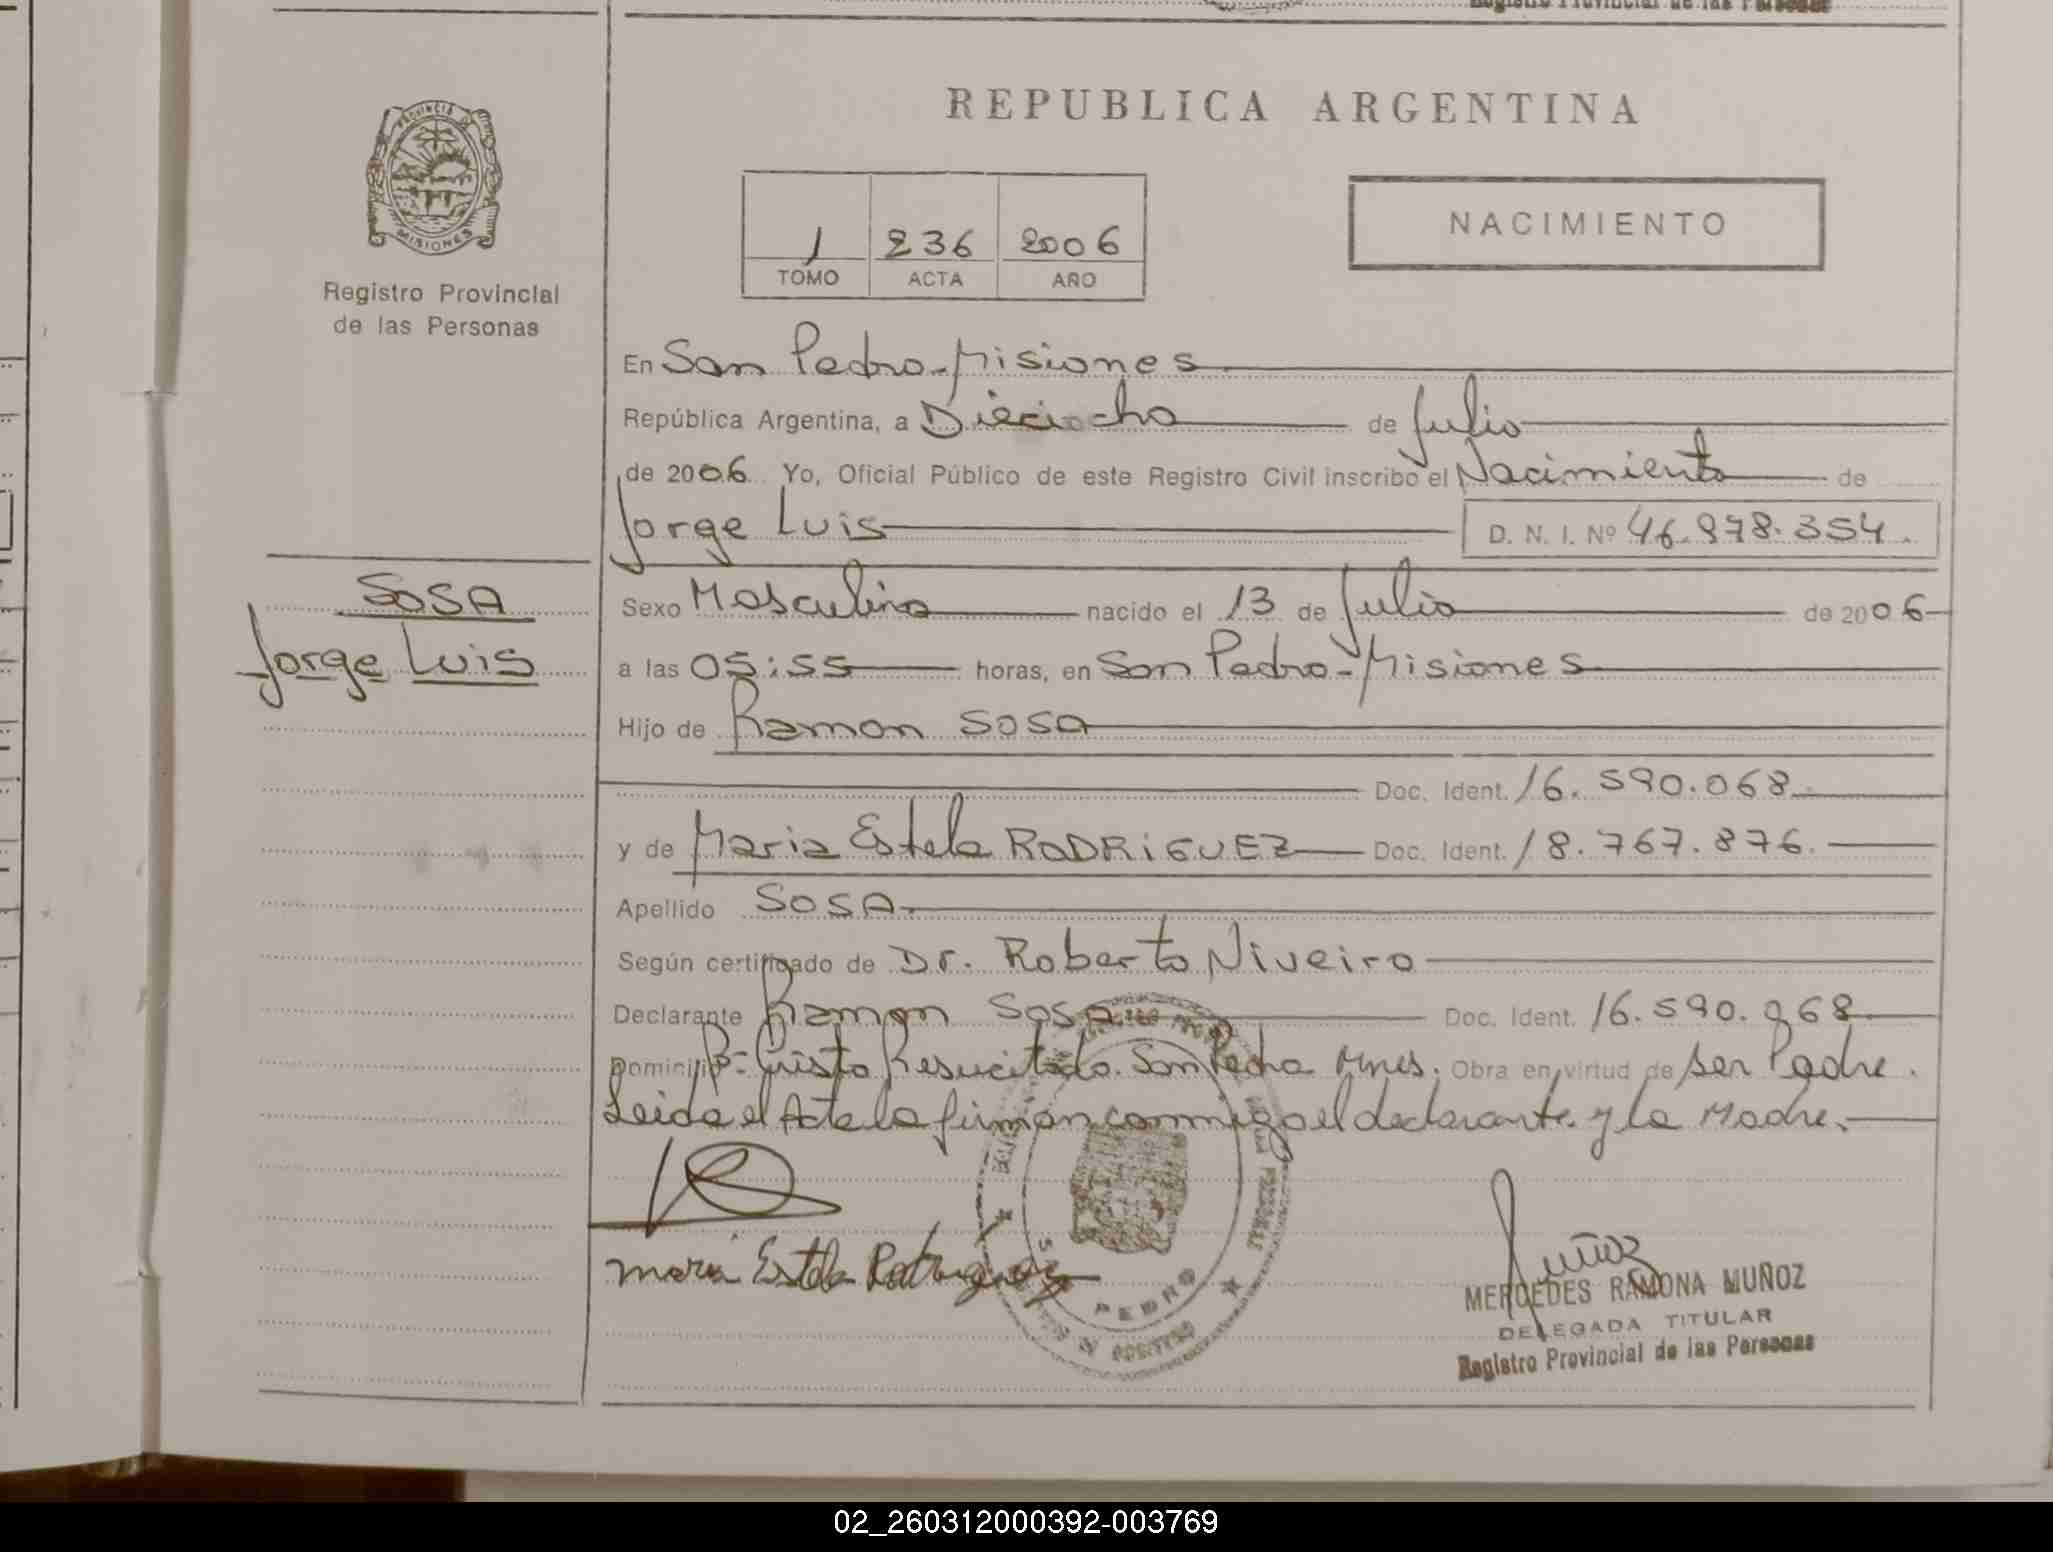 Registro Provincial de las Personas
REPUBLICA ARGENTINA
PROVINCIA DE
MISIONES
Registro Provincial
de las Personas
1 236 2006
TOMO ACTA AÑO
NACIMIENTO
En San Pedro-Misiones
República Argentina, a Dieciocho de Julio
de 2006 Yo, Oficial Público de este Registro Civil inscribo el Nacimiento de
Jorge Luis D. N. I. Nº 46.978.354.
SOSA
Jorge Luis
Sexo Masculino nacido el 13 de Julio de 2006
a las 05:55 horas, en San Pedro-Misiones
Hijo de Ramon SOSA
Doc. Ident. 16.590.068.
y de Maria Estela RODRIGUEZ Doc. Ident. 18.767.876.
Apellido SOSA
Según certificado de Dr. Roberto Niveiro
Declarante Ramon SOSA Doc. Ident. 16.590.068
Domicilio Bº Cristo Resucitado. San Pedro Mnes. Obra en virtud de ser Padre.
Leida el Acta la firman conmigo el declarante y la Madre.
Maria Estela Rodriguez
PEDRO
Muñoz
MERCEDES RAMONA MUÑOZ
DELEGADA TITULAR
Registro Provincial de las Personas
02_260312000392-003769